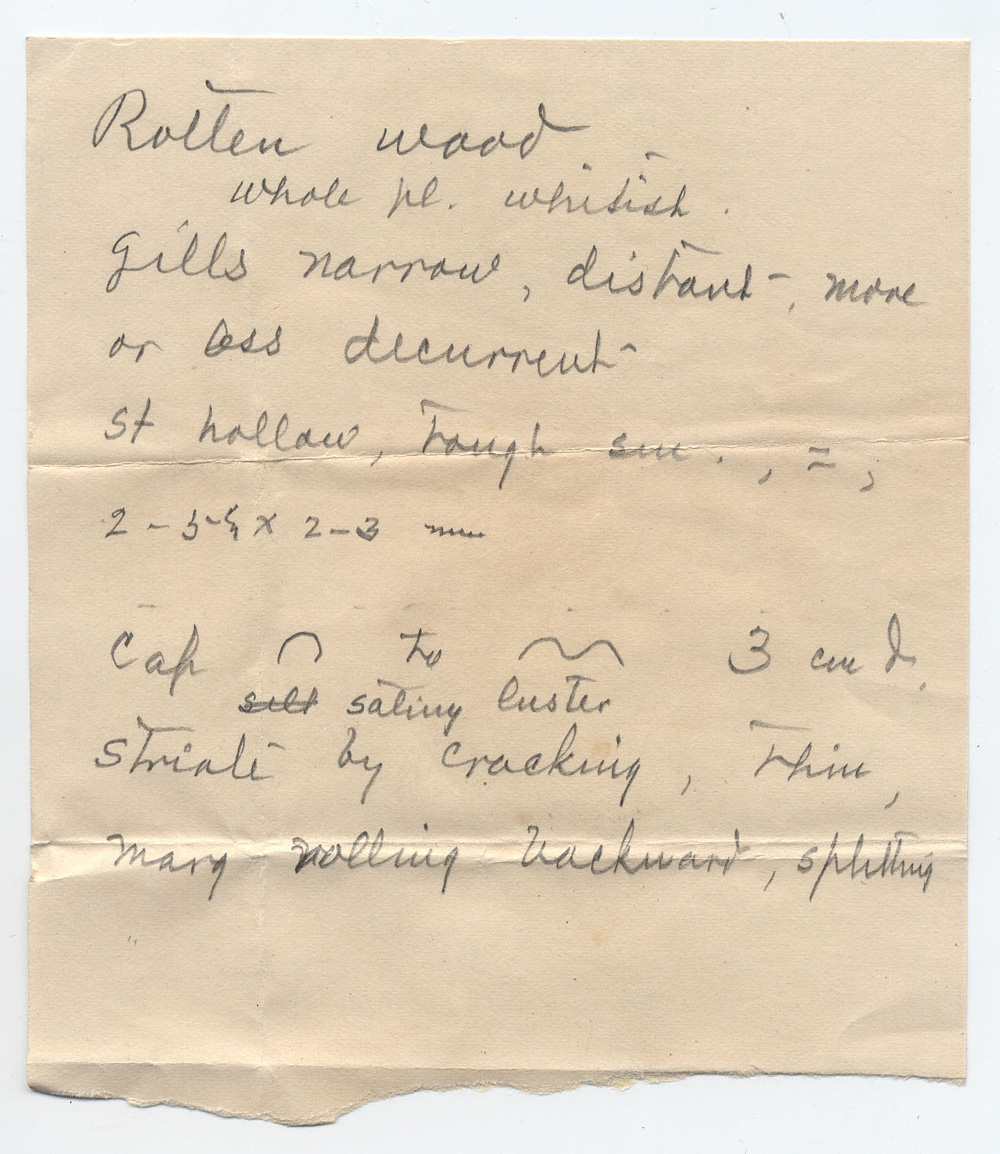 Rotten wood
whole pl. whitish.
Gills narrow, distant, more
or less decurrent
St hollow, tough sm., =,
2 - 5 × 2-3 mm
Cap ⌒ to 3 cm d.
silk satiny luster
Striate by cracking, thin,
marg rolling backward, splitting